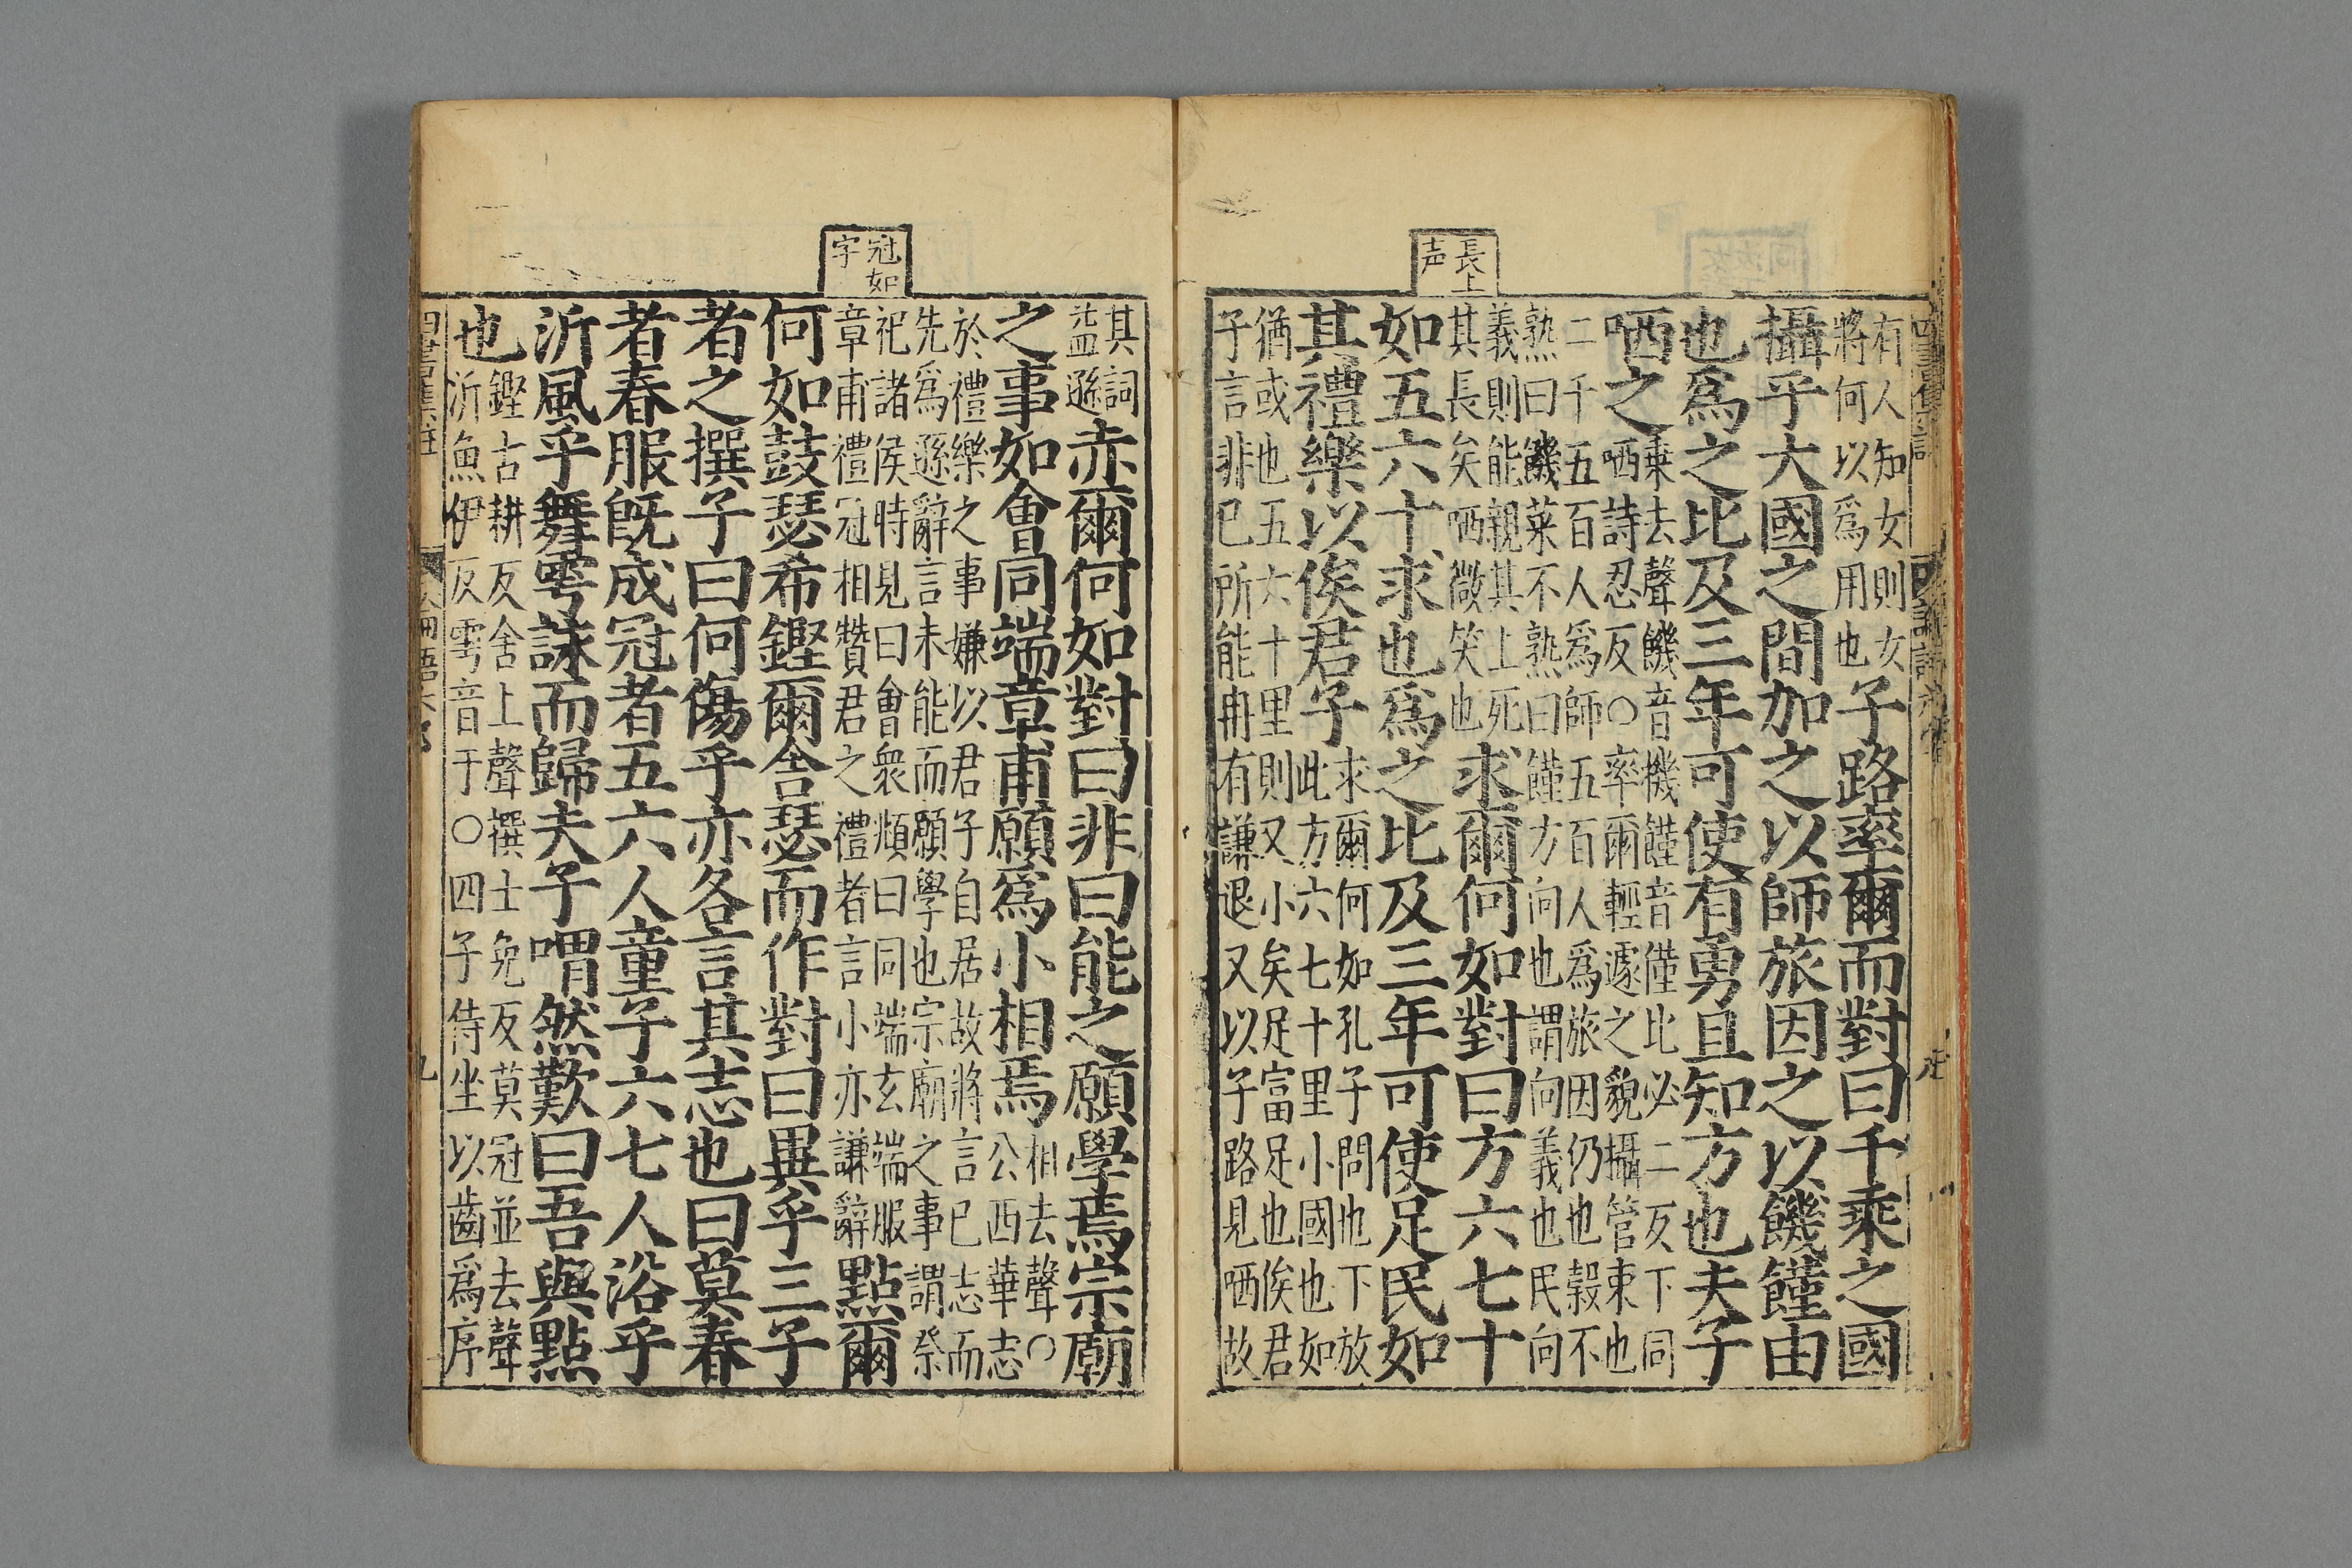 長上
声
有人知女則女
將何以爲用也
子路率爾而對曰千乘之國
攝乎大國之間加之以師旅因之以饑饉由
也爲之比及三年可使有勇且知方也夫子
哂之
乗去聲饑音機饉音僅比必二反下同
哂詩忍反○率爾輕遽之貌攝管束也
二千五百人爲師五百人爲旅因仍也穀不
熟曰饑菜不熟曰饉方向也謂向義也民向
義則能親其上死
其長矣哂微笑也
求爾何如對曰方六七十
如五六十求也爲之比及三年可使足民如
其禮樂以俟君子
求爾何如孔子問也下放
此方六七十里小國也如
猶或也五六十里則又小矣足富足也俟君
子言非已所能冉有謙退又以子路見哂故
冠如
字
其詞
益遜
赤爾何如對曰非曰能之願學焉宗廟
之事如會同端章甫願爲小相焉
相去聲○
公西華志
於禮樂之事嫌以君子自居故將言已志而
先爲遜辭言未能而願學也宗廟之事謂祭
祀諸侯時見曰會衆頫曰同端玄端服
章甫禮冠相贊君之禮者言小亦謙辭
點爾
何如鼓瑟希鏗爾舍瑟而作對曰異乎三子
者之撰子曰何傷乎亦各言其志也曰莫春
者春服旣成冠者五六人童子六七人浴乎
沂風乎舞雩詠而歸夫子喟然歎曰吾與點
也
鏗古耕反舍上聲撰士免反莫冠並去聲
沂魚伊反雩音于○四子侍坐以齒爲序
四書集註
九